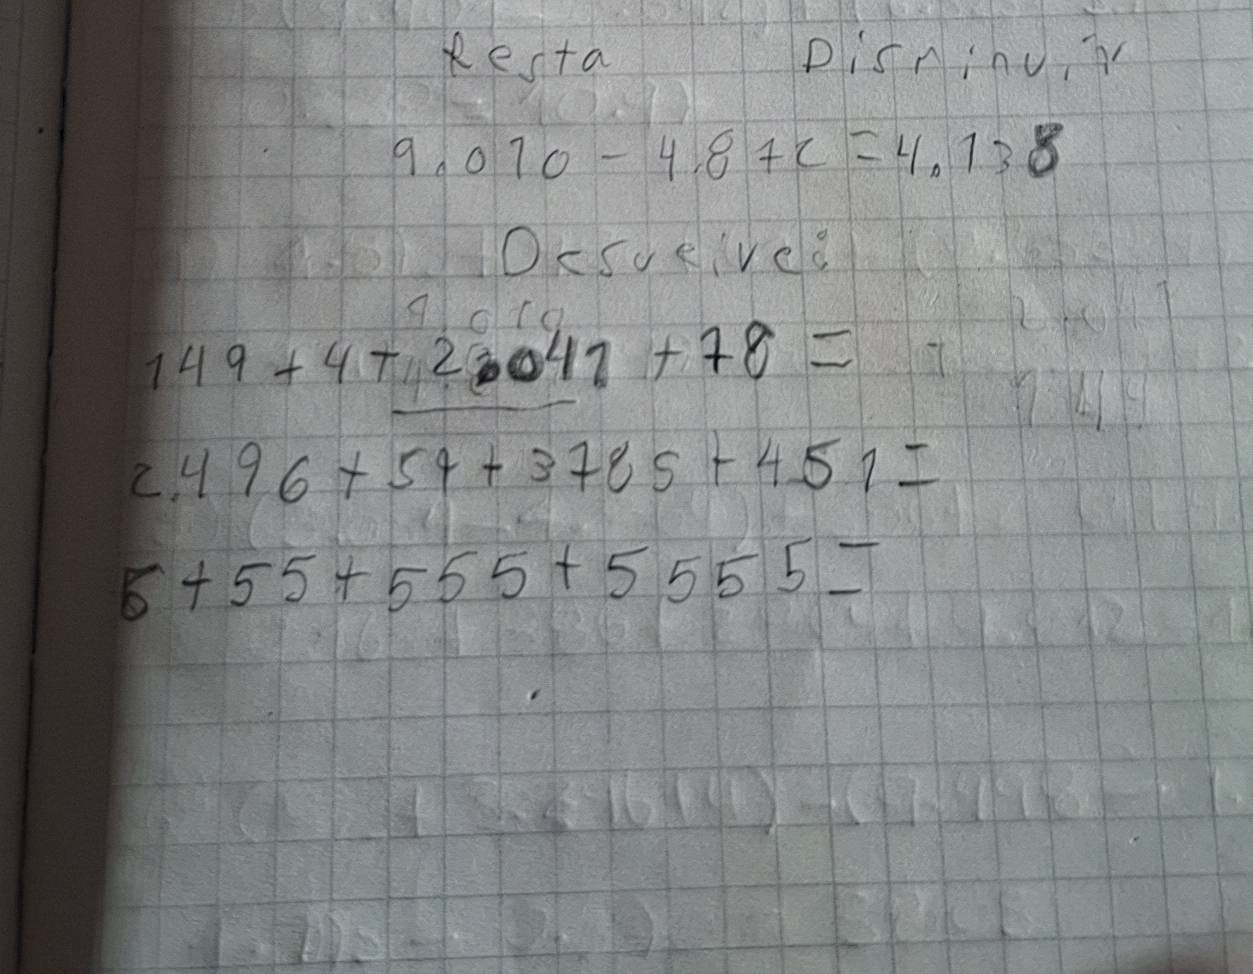 Resta Disminuir
9.010 - 4.872 = 4.138
Desuelve:
149 + 4 + 2041 + 78 =
2.496 + 59 + 3785 + 451 =
5 + 55 + 555 + 5555 =